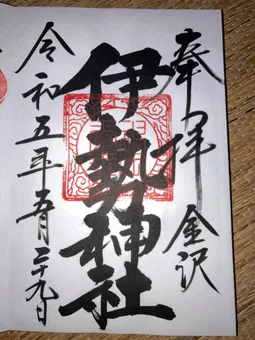 奉拝 金沢
伊勢神社
令和五年五月二十九日